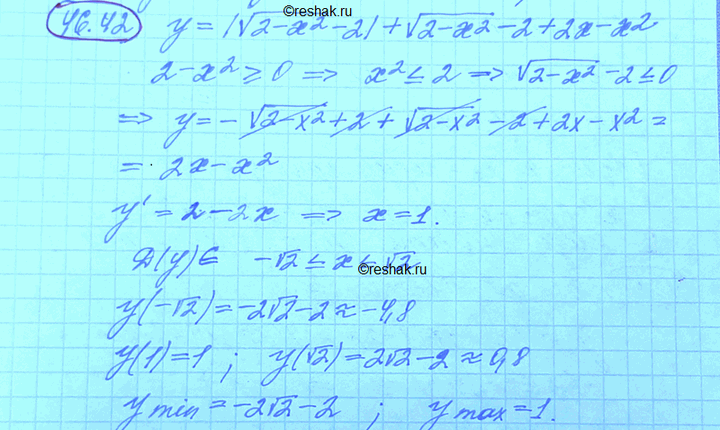 ©reshak.ru
46.42 y = |√2-x² -2| + √2-x² -2+2x-x²
2-x² ≥ 0 ⇒ x² ≤ 2 ⇒ √2-x² -2 ≤ 0
⇒ y = -√2-x² +2+√2-x² -2+2x-x² =
= 2x-x²
y' = 2-2x ⇒ x=1.
D(y)∈ -√2 ≤ x ≤ √2
©reshak.ru
y(-√2) = -2√2-2 ≈ -4,8
y(1)=1 ; y(√2) = 2√2-2 ≈ 0,8
y min = -2√2-2 ; y max = 1.